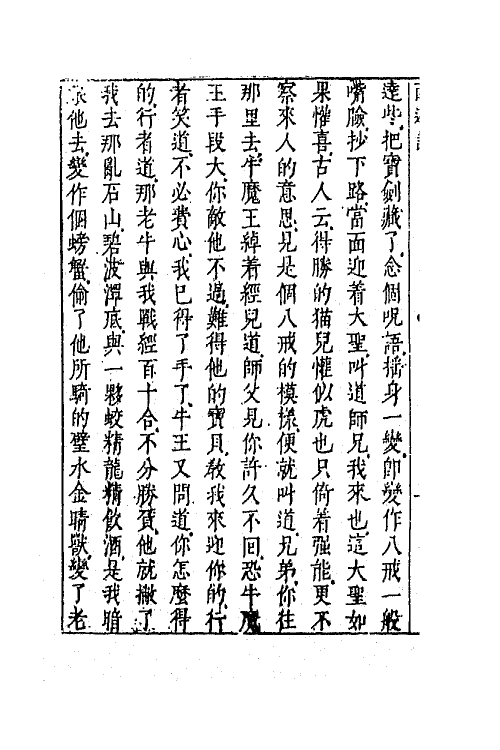 達些把寶劍藏了念個呪語搖身一變即變作八戒一般
嘴臉抄下路當面迎着大聖叫道師兄我來也這大聖如
果懽喜古人云得勝的猫兒懽似虎也只倚着强能更不
察來人的意思見是個八戒的模樣便就叫道兄弟你往
那里去牛魔王綽着經兒道師父見你許久不回恐牛魔
王手段大你敵他不過難得他的寶貝教我來迎你的行
者笑道不必費心我已得了手了牛王又問道你怎麼得
的行者道那老牛與我戰經百十合不分勝負他就撇了
我去那亂石山碧波潭底與一夥蛟精龍精飲酒是我暗
他去變作個螃蟹偷了他所騎的壁水金睛獸變了老